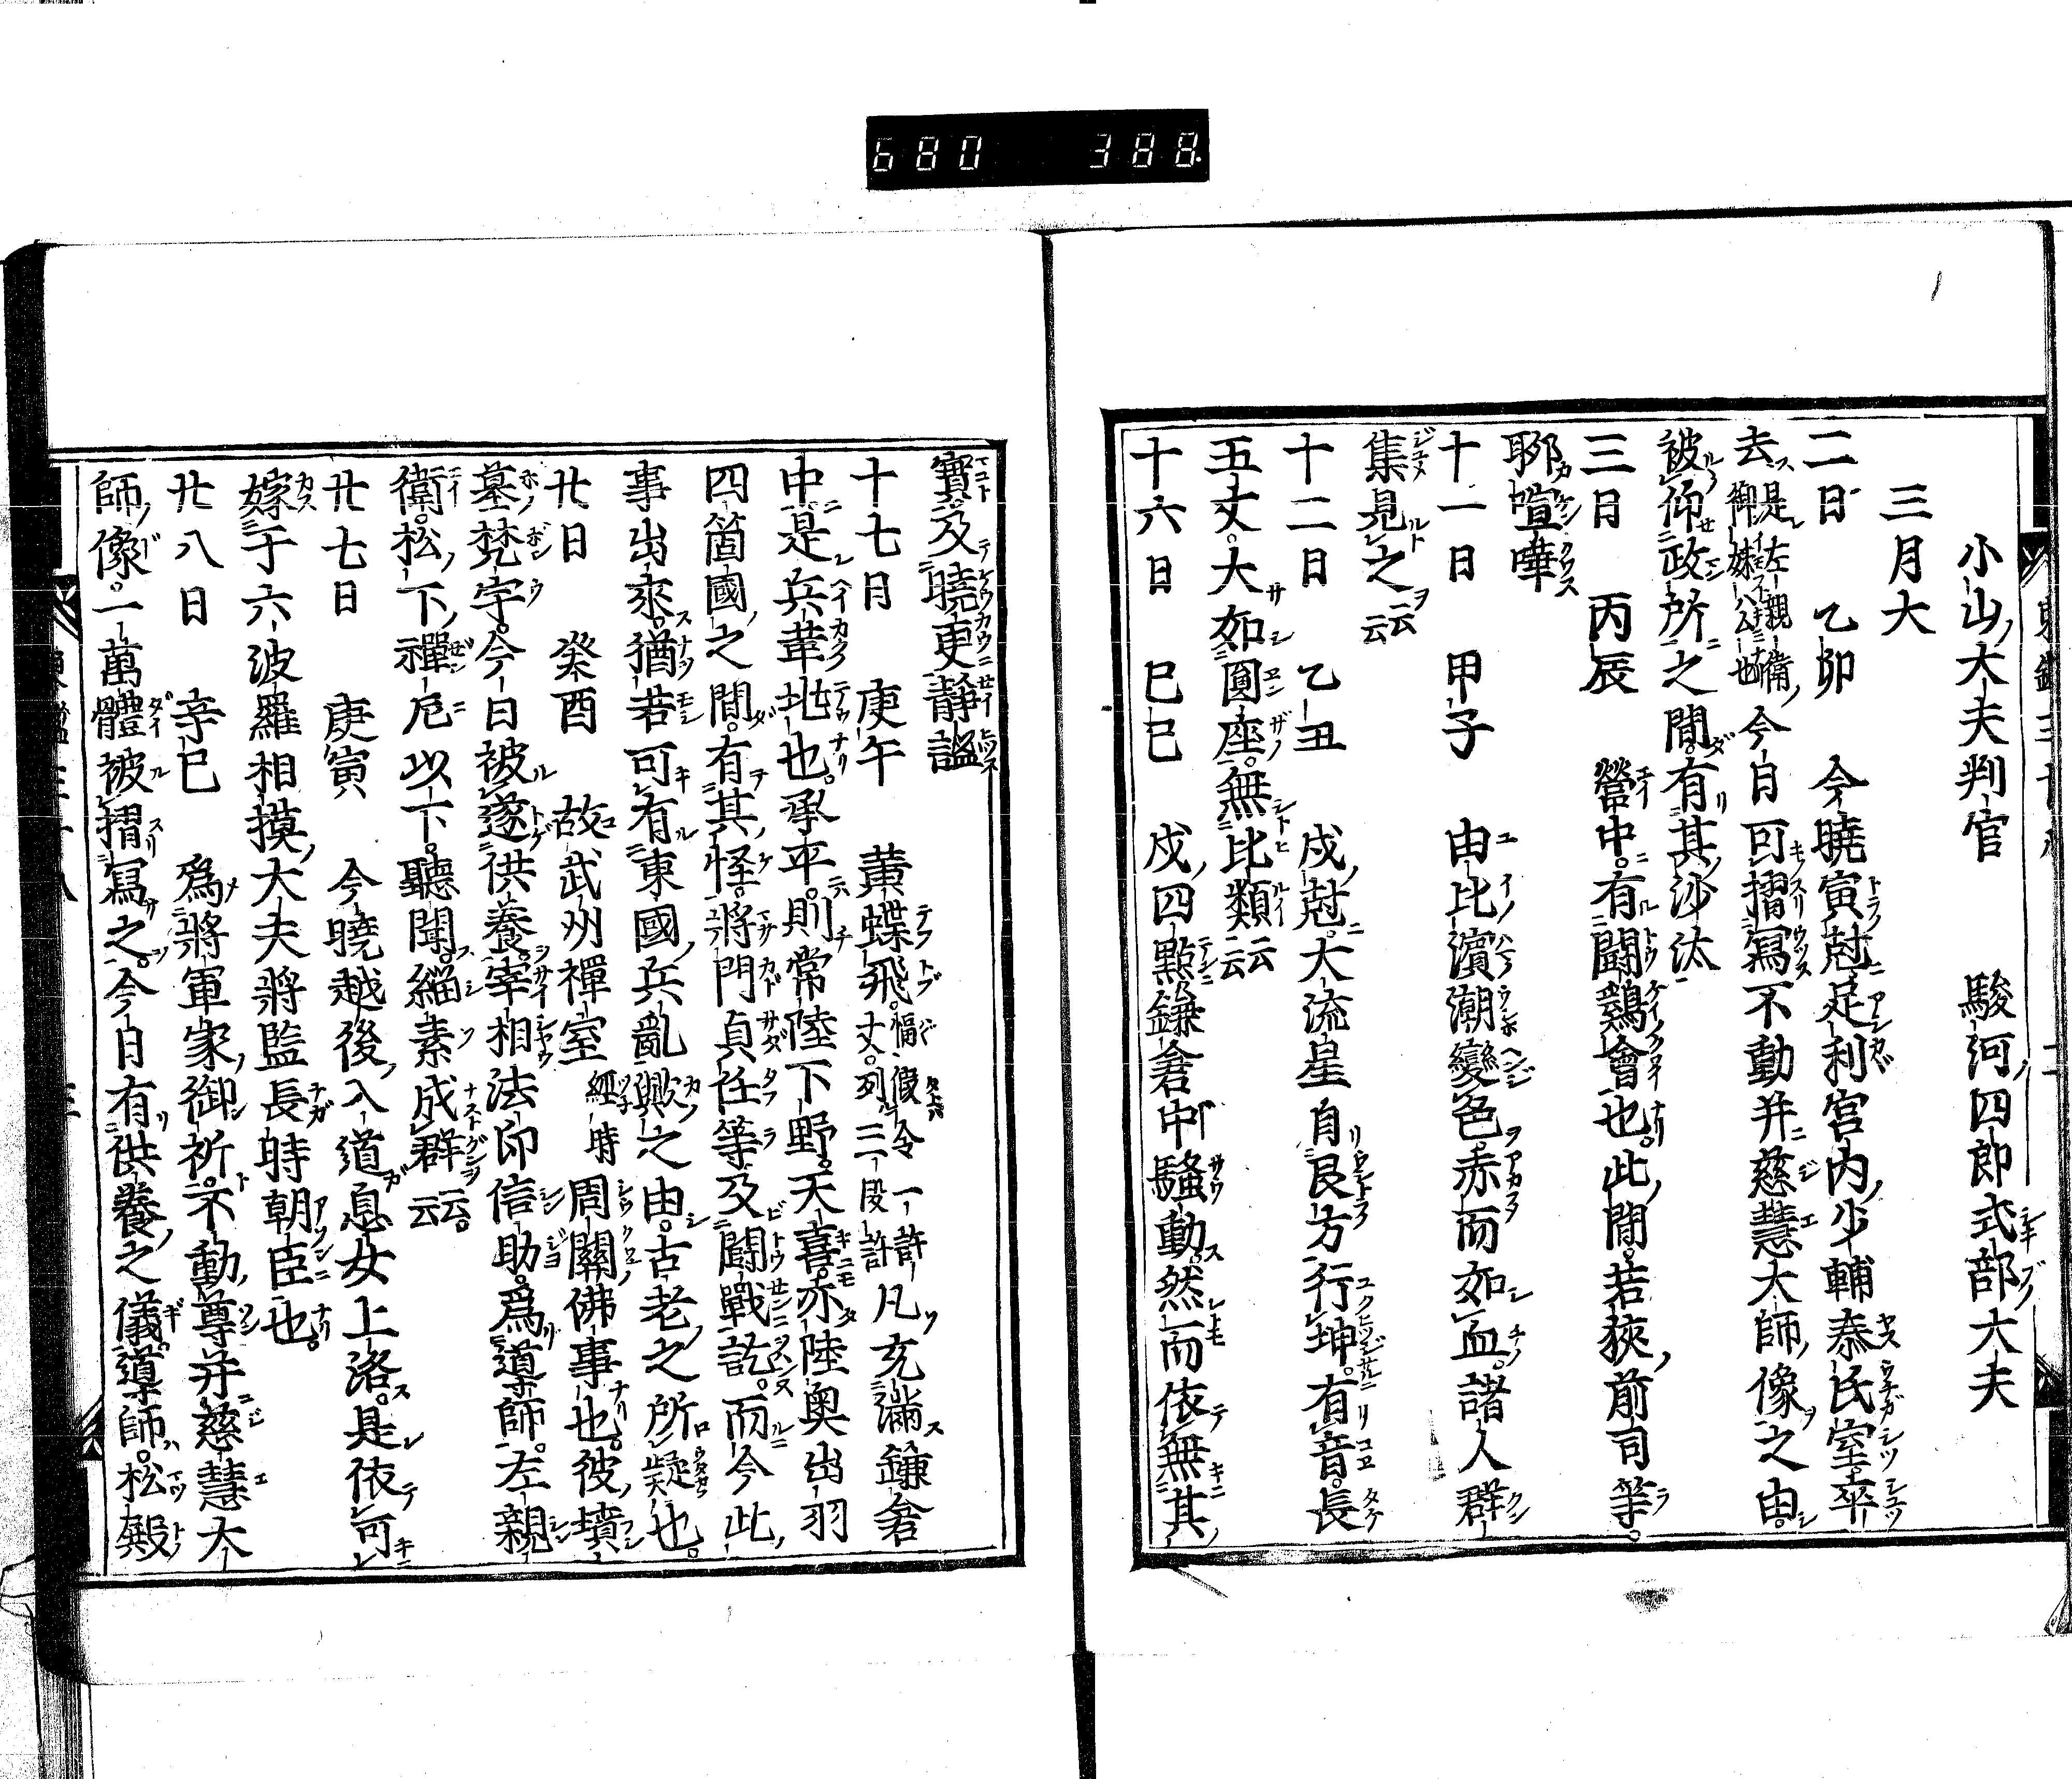 680 388
小山大夫判官 駿河四郎式部大夫
三月大
二日 乙卯 今曉寅尅足利宮内少輔泰氏室卒
去是左親衛御妹公也今日可摺寫不動并慈慧大師像之由
被仰政所之間有其沙汰
三日 丙辰 營中有鬪鷄會也此間若狹前司等
聊喧嘩
十一日 甲子 由比濱潮變色赤而如血諸人群
集見之云云
十二日 乙丑 戌尅大流星自艮方行坤有音長
五丈大如圓座無比類云云
十六日 己巳 戌四點鎌倉中騷動然而依無其
實及曉更靜謐
十七日 庚午 黄蝶飛幅假令一許丈列三段許凡充滿鎌倉
中是兵革兆也承平則常陸下野天喜亦陸奥出羽
四箇國之間有其怪將門貞任等及鬪戰訖而今此
事出來猶若可有東國兵亂歟之由古老之所疑也
廿日 癸酉 故武州禪室經時周闋佛事也彼墳
墓梵宇今日被遂供養宰相法印信助爲導師左親
衛松下禪尼以下聽聞緇素成群云云
廿七日 庚寅 今曉越後入道息女上洛是依可
嫁于六波羅相摸大夫將監長時朝臣也
廿八日 辛巳 爲將軍家御祈不動尊并慈慧大
師像一萬體被摺寫之今日有供養之儀導師松殿